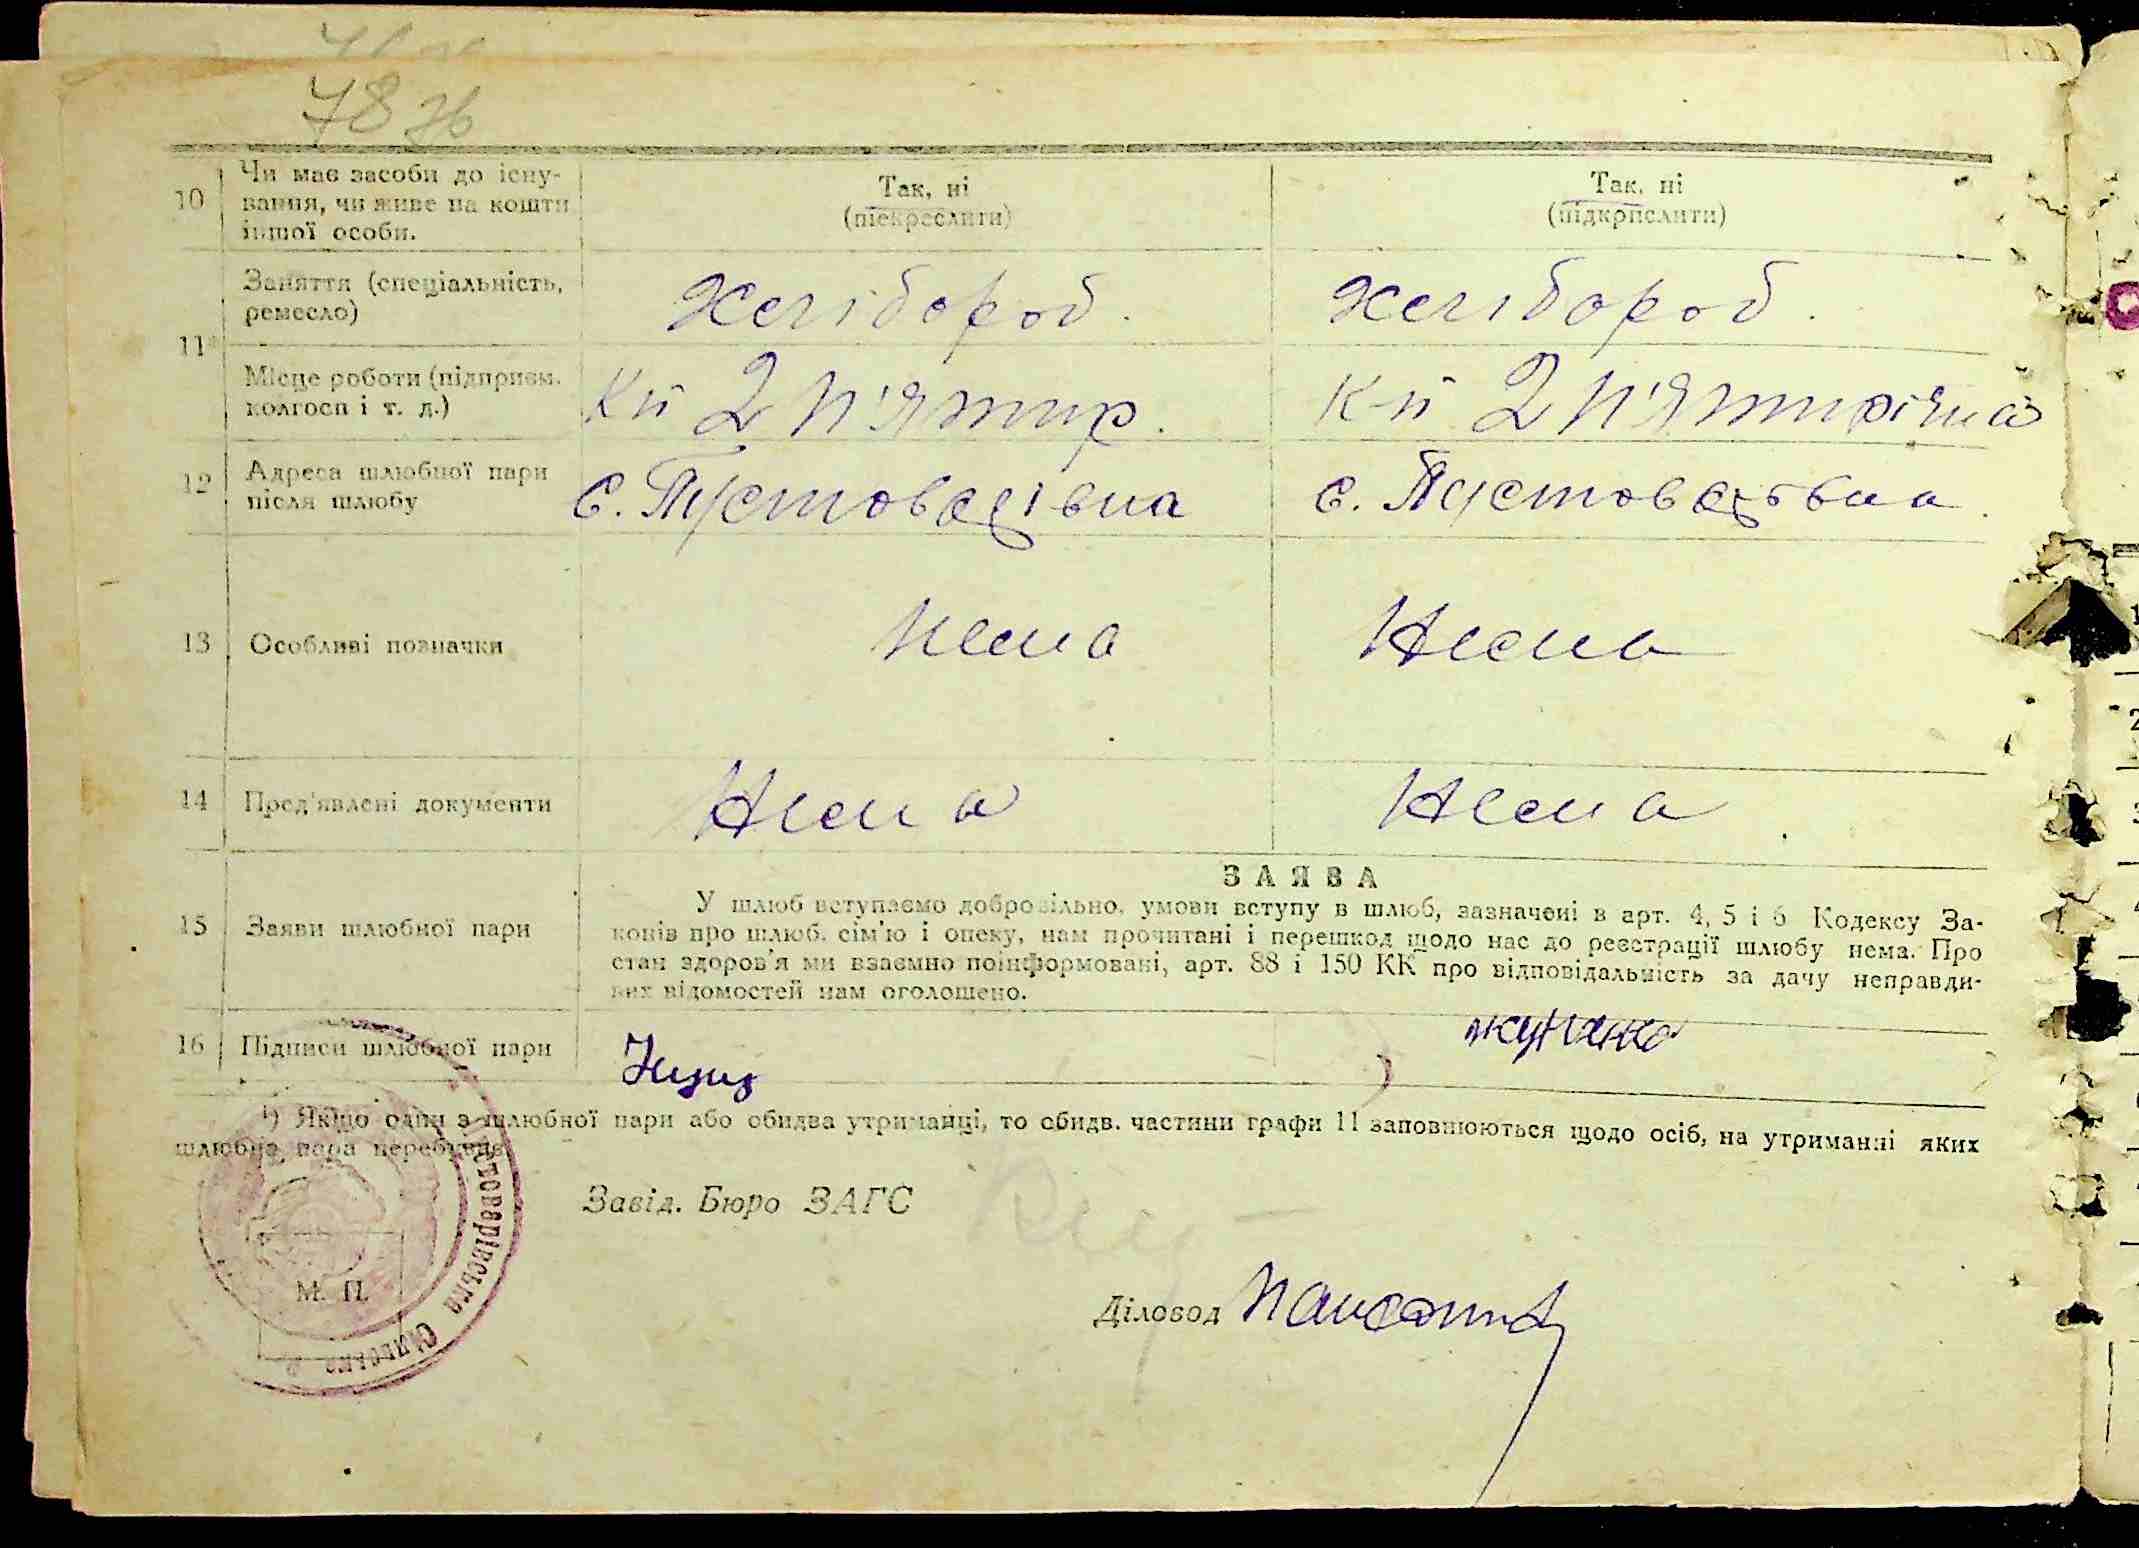 78 зв
10 Чи має засоби до існу-
вання, чи живе на кошти
іншої особи.
Так, ні
(підкреслити)
Так, ні
(підкрислити)
11¹
Заняття (спеціальність,
ремесло)
Хлібороб.
Хлібороб.
Місце роботи (підприєм.
колгосп і т. д.)
К-п 2 п'ятир.
К-п 2 п'ятирічка
12 Адреса шлюбної пари
після шлюбу
с. Пустоварівка
с. Пустоварівка
13 Особливі позначки
Нема
Нема
14 Пред'явлені документи
Нема
Нема
15 Заяви шлюбної пари
ЗАЯВА
У шлюб вступаємо добровільно, умови вступу в шлюб, зазначені в арт. 4, 5 і 6 Кодексу За-
конів про шлюб, сім'ю і опеку, нам прочитані і перешкод щодо нас до реєстрації шлюбу нема. Про
стан здоров'я ми взаємно поінформовані, арт. 88 і 150 КК про відповідальність за дачу неправди-
вих відомостей нам оголошено.
16 Підписи шлюбної пари
¹) Якщо один з шлюбної пари або обидва утриманці, то обидв. частини графи 11 заповнюються щодо осіб, на утриманні яких
шлюбна пара перебуває.
Завід. Бюро ЗАГС
М. П.
Діловод